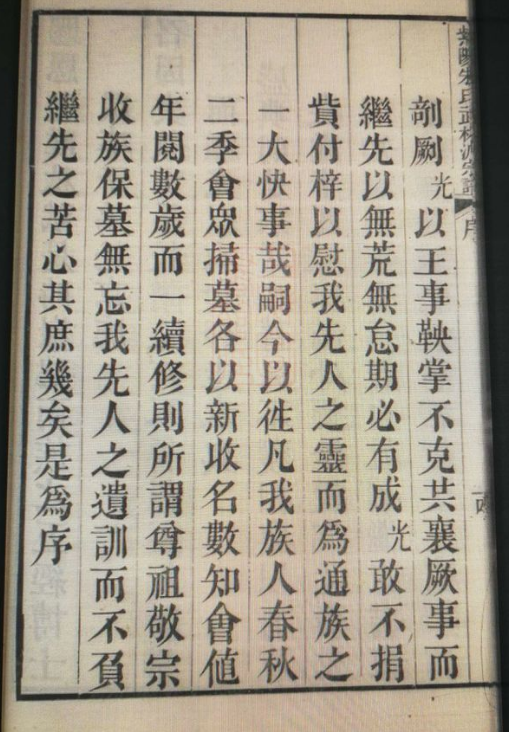 剞劂光以王事鞅掌不克共襄厥事而
繼先以無荒無怠期必有成光敢不捐
貲付梓以慰我先人之靈而爲通族之
一大快事哉嗣今以徃凡我族人春秋
二季會眾掃墓各以新收名數知會値
年閱數歲而一續修則所謂尊祖敬宗
收族保墓無忘我先人之遺訓而不負
繼先之苦心其庶幾矣是爲序